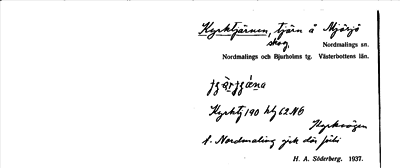 Kyrktjärnen, tjärn å Mjösjö
skog,
Nordmalings sn.
Nordmalings och Bjurholms tg. Västerbottens län.
Kyrktj 190 htj 62 NO
Kyrkvägen
1. Nordmaling gick där
H. A. Söderberg. 1937.